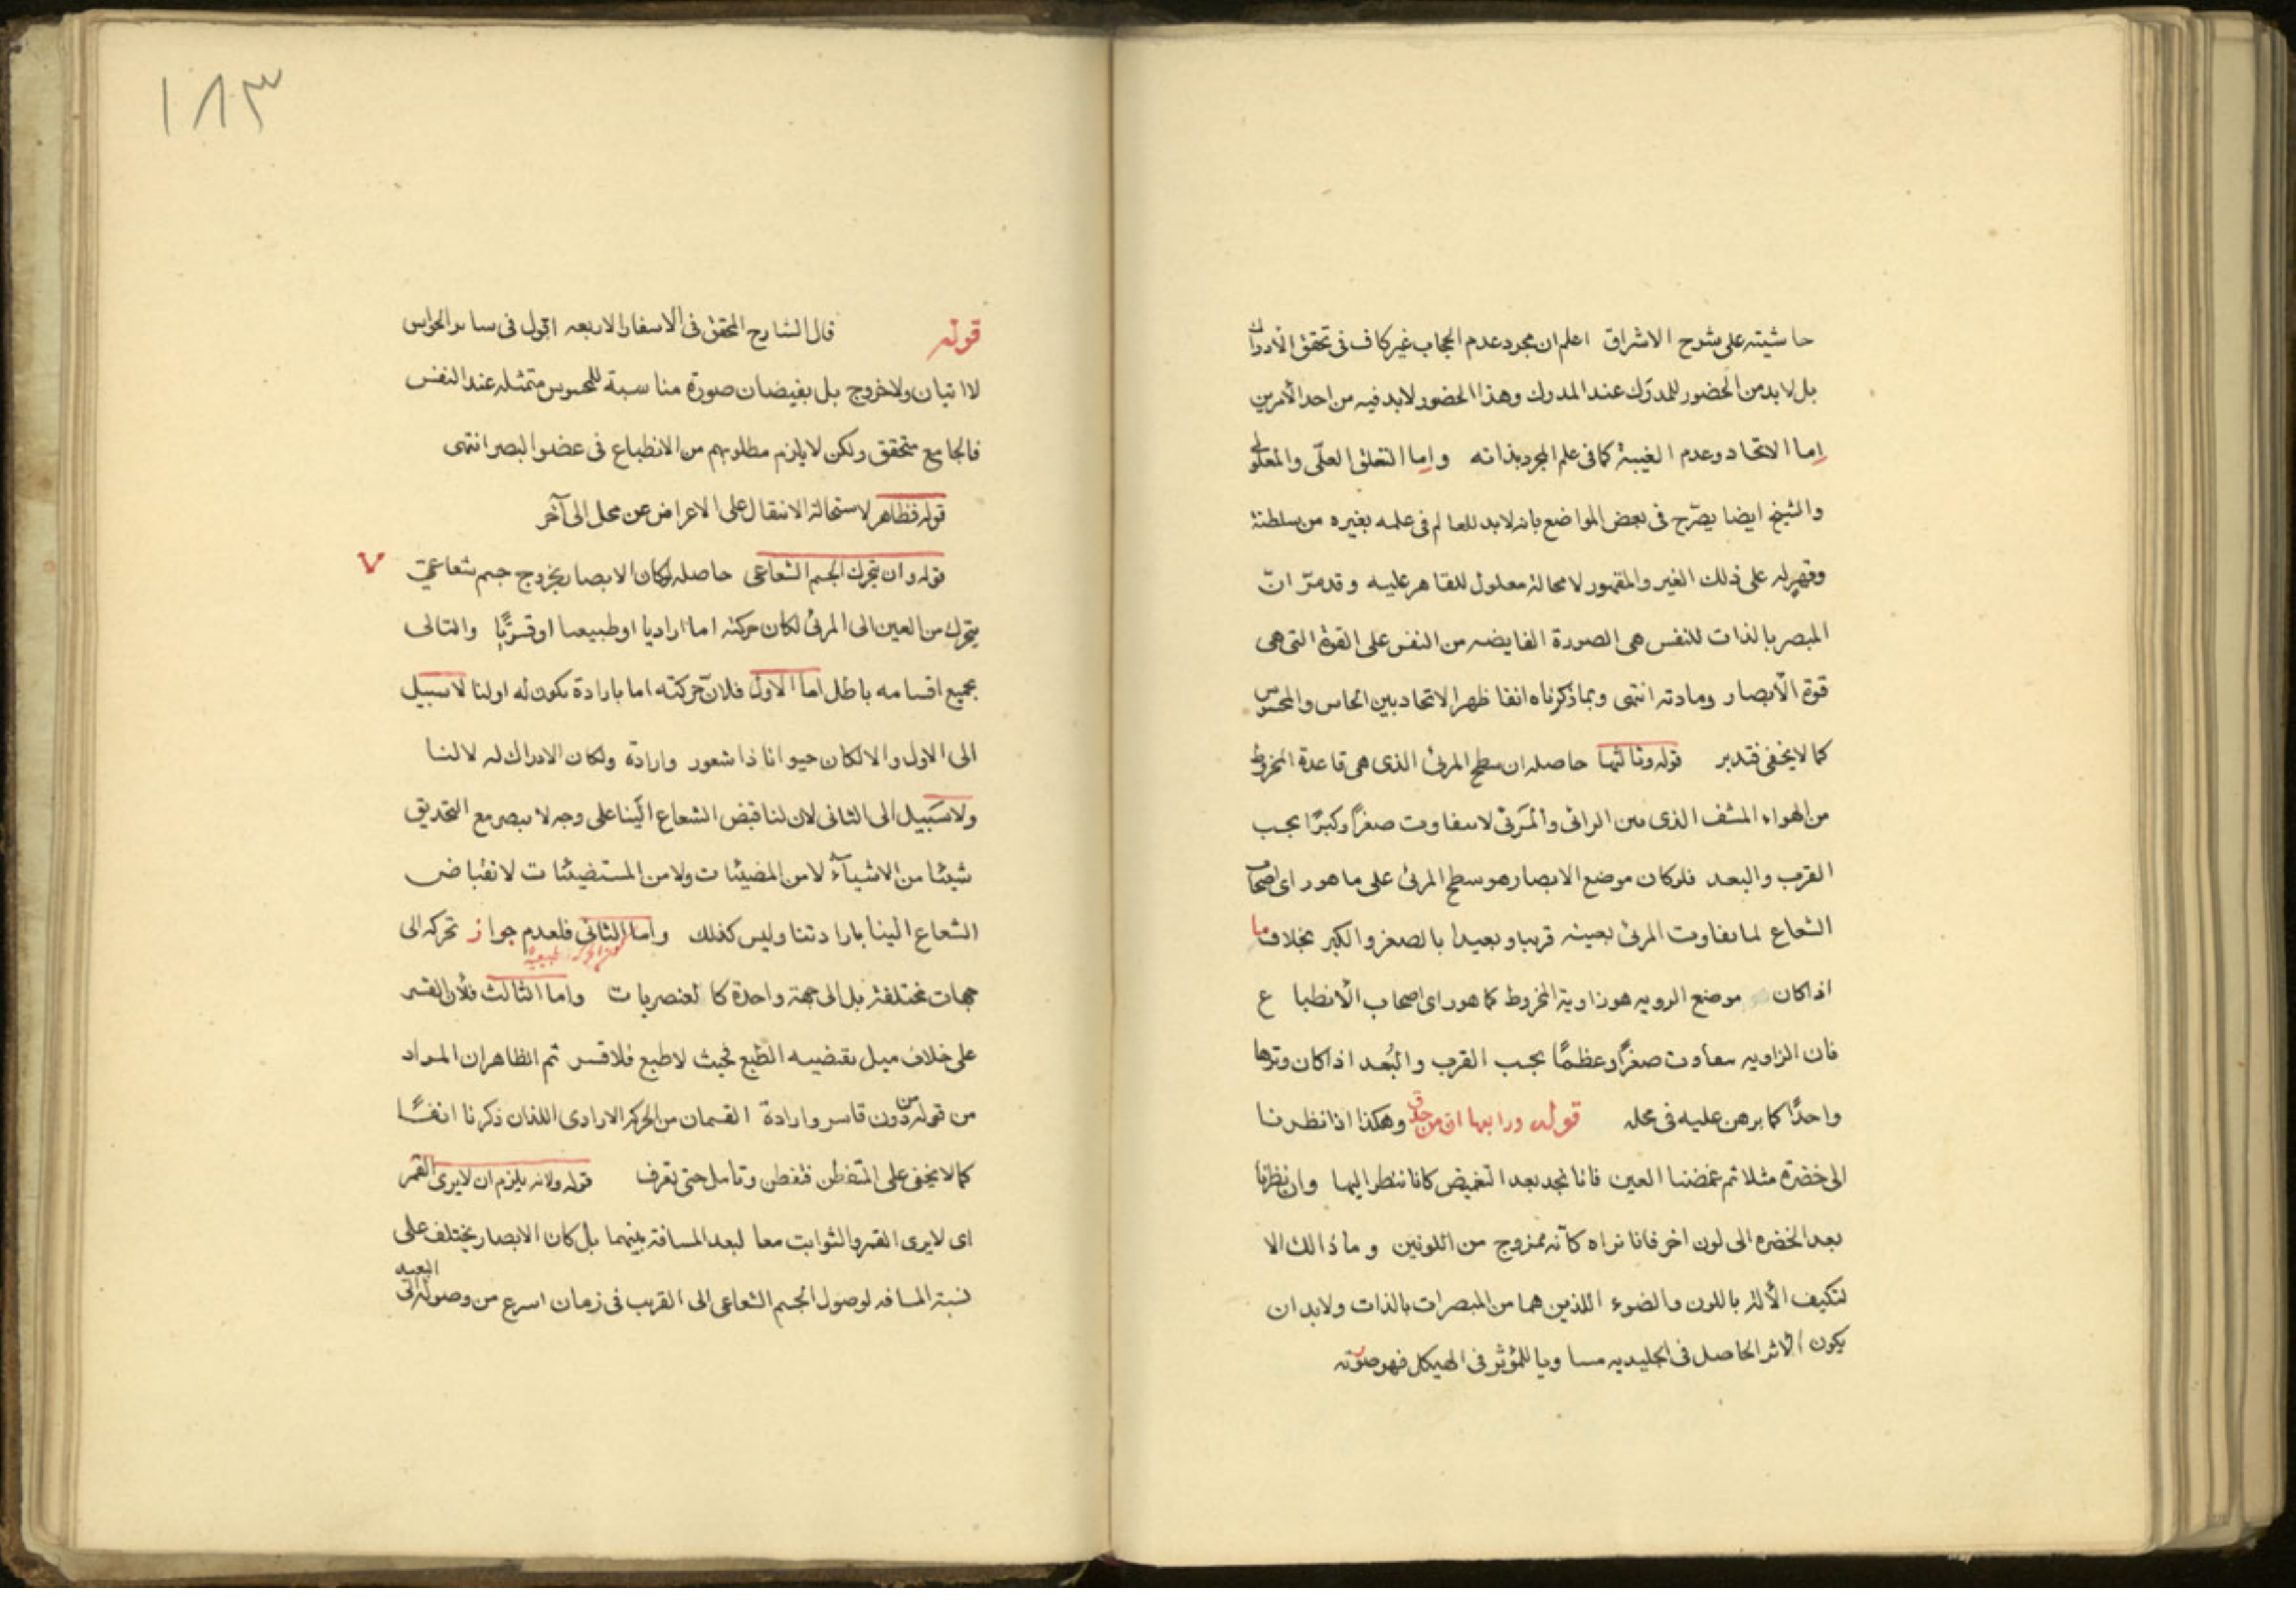 حاشيته على شرح الاشراق اعلم ان مجرد عدم الحجاب غير كاف فى تحقق الادراك
بل لا بد من الحضور للمدرك عند المدرك وهذا الحضور لا بد فيه من احد الأمرين
اما الاتحاد وعدم الغيبة كما فى علم المجرد بذاته واما التعلق العلّى والمعلولى
والشيخ ايضا يصرّح فى بعض المواضع بانه لابد للعالم فى علمه بغيره من سلطنة
وقهر له على ذلك الغير والمقهور لا محالة معلول للقاهر عليه وقد مرّ انّ
المبصر بالذات للنفس هى الصورة الفايضه من النفس على القوة التى هى
قوة الأبصار ومادته انتهى وبما ذكرناه انفا ظهر الاتحاد بين الحاس والمحسوس
كما لا يخفى فتدبر قوله وثالثها حاصله ان سطح المرئى الذى هى قاعدة المخروط
من الهواء المشف الذى بين الرائى والمرئى لا يتفاوت صغرًا وكبرًا بحسب
القرب والبعد فلو كان موضع الابصار هو سطح المرئى على ما هو راى اصحاب
الشعاع لما تفاوت المرئى بعينه قريبا وبعيدا بالصغر والكبر بخلاف ما
اذا كان موضع الرويه هو زاوية المخروط كما هو راى اصحاب الأنطباع
فان الزاويه يتفاوت صغرًا وعظمًا بحسب القرب والبُعد اذا كان وترها
واحدًا كما برهن عليه فى محله قوله ورابعها ان من حدق وهكذا اذا نظرنا
الى خضرة مثلا ثم غمضنا العين فانا نجد بعد التغميض كانا ننظر اليها وان نظرنا
بعد الخضره الى لون اخر فانا نراه كأنه ممزوج من اللونين وما ذالك الا
لتكيف الألة باللون والضوء اللذين هما من المبصرات بالذات ولابد ان
يكون الاثر الحاصل فى الجليديه مساويا للمؤثر فى الهيكل فهو صورته
١٨٣
قوله قال الشارح المحقق فى الاسفار الاربعه اقول فى ساير الحواس
لا اتيان ولا خروج بل بفيضان صورة مناسبة للمحسوس متمثله عند النفس
فالجامع متحقق ولكن لا يلزم مطلوبهم من الانطباع فى عضو البصر انتهى
قوله فظاهر لاستحالة الانتقال على الاعراض عن محل الى آخر
قوله وان يتحرك الجسم الشعاعى حاصله لو كان الابصار بخروج جسم شعاعىّ
يتحرك من العين الى المرئى لكان حركته اما اراديا او طبيعيا او قسريًا والتالى
بجميع اقسامه باطل اما الاول فلانّ حركته اما بارادة يكون له او لنا لا سبيل
الى الاول والا لكان حيوانا ذا شعور وارادة ولكان الادراك له لا لنا
ولا سبيل الى الثانى لان لنا قبض الشعاع الينا على وجه لا يبصر مع التحديق
شيئا من الاشيآء لا من المضيئات ولا من المستضيئات لانقباض
الشعاع الينا بارادتنا وليس كذلك واما الثانى فلعدم جواز تحركه الى
جهات مختلفة بل الى جهة واحدة كالعنصريات واما الثالث فلأن القسر
على خلاف ميل يقتضيه الطبع فحيث لا طبع فلا قسر ثم الظاهر ان المراد
من قوله من دون قاسر وارادة القسمان من الحركة الارادى اللذان ذكرنا انفًا
كما لا يخفى على المتفطن فتفطن وتامل حتى تعرف قوله ولانه يلزم ان لا يرى القمر
اى لا يرى القمر والثوابت معا لبعد المسافة بينهما بل كان الابصار يختلف على
نسبة المسافه لوصول الجسم الشعاعى الى القريب فى زمان اسرع من وصوله الى البعيد